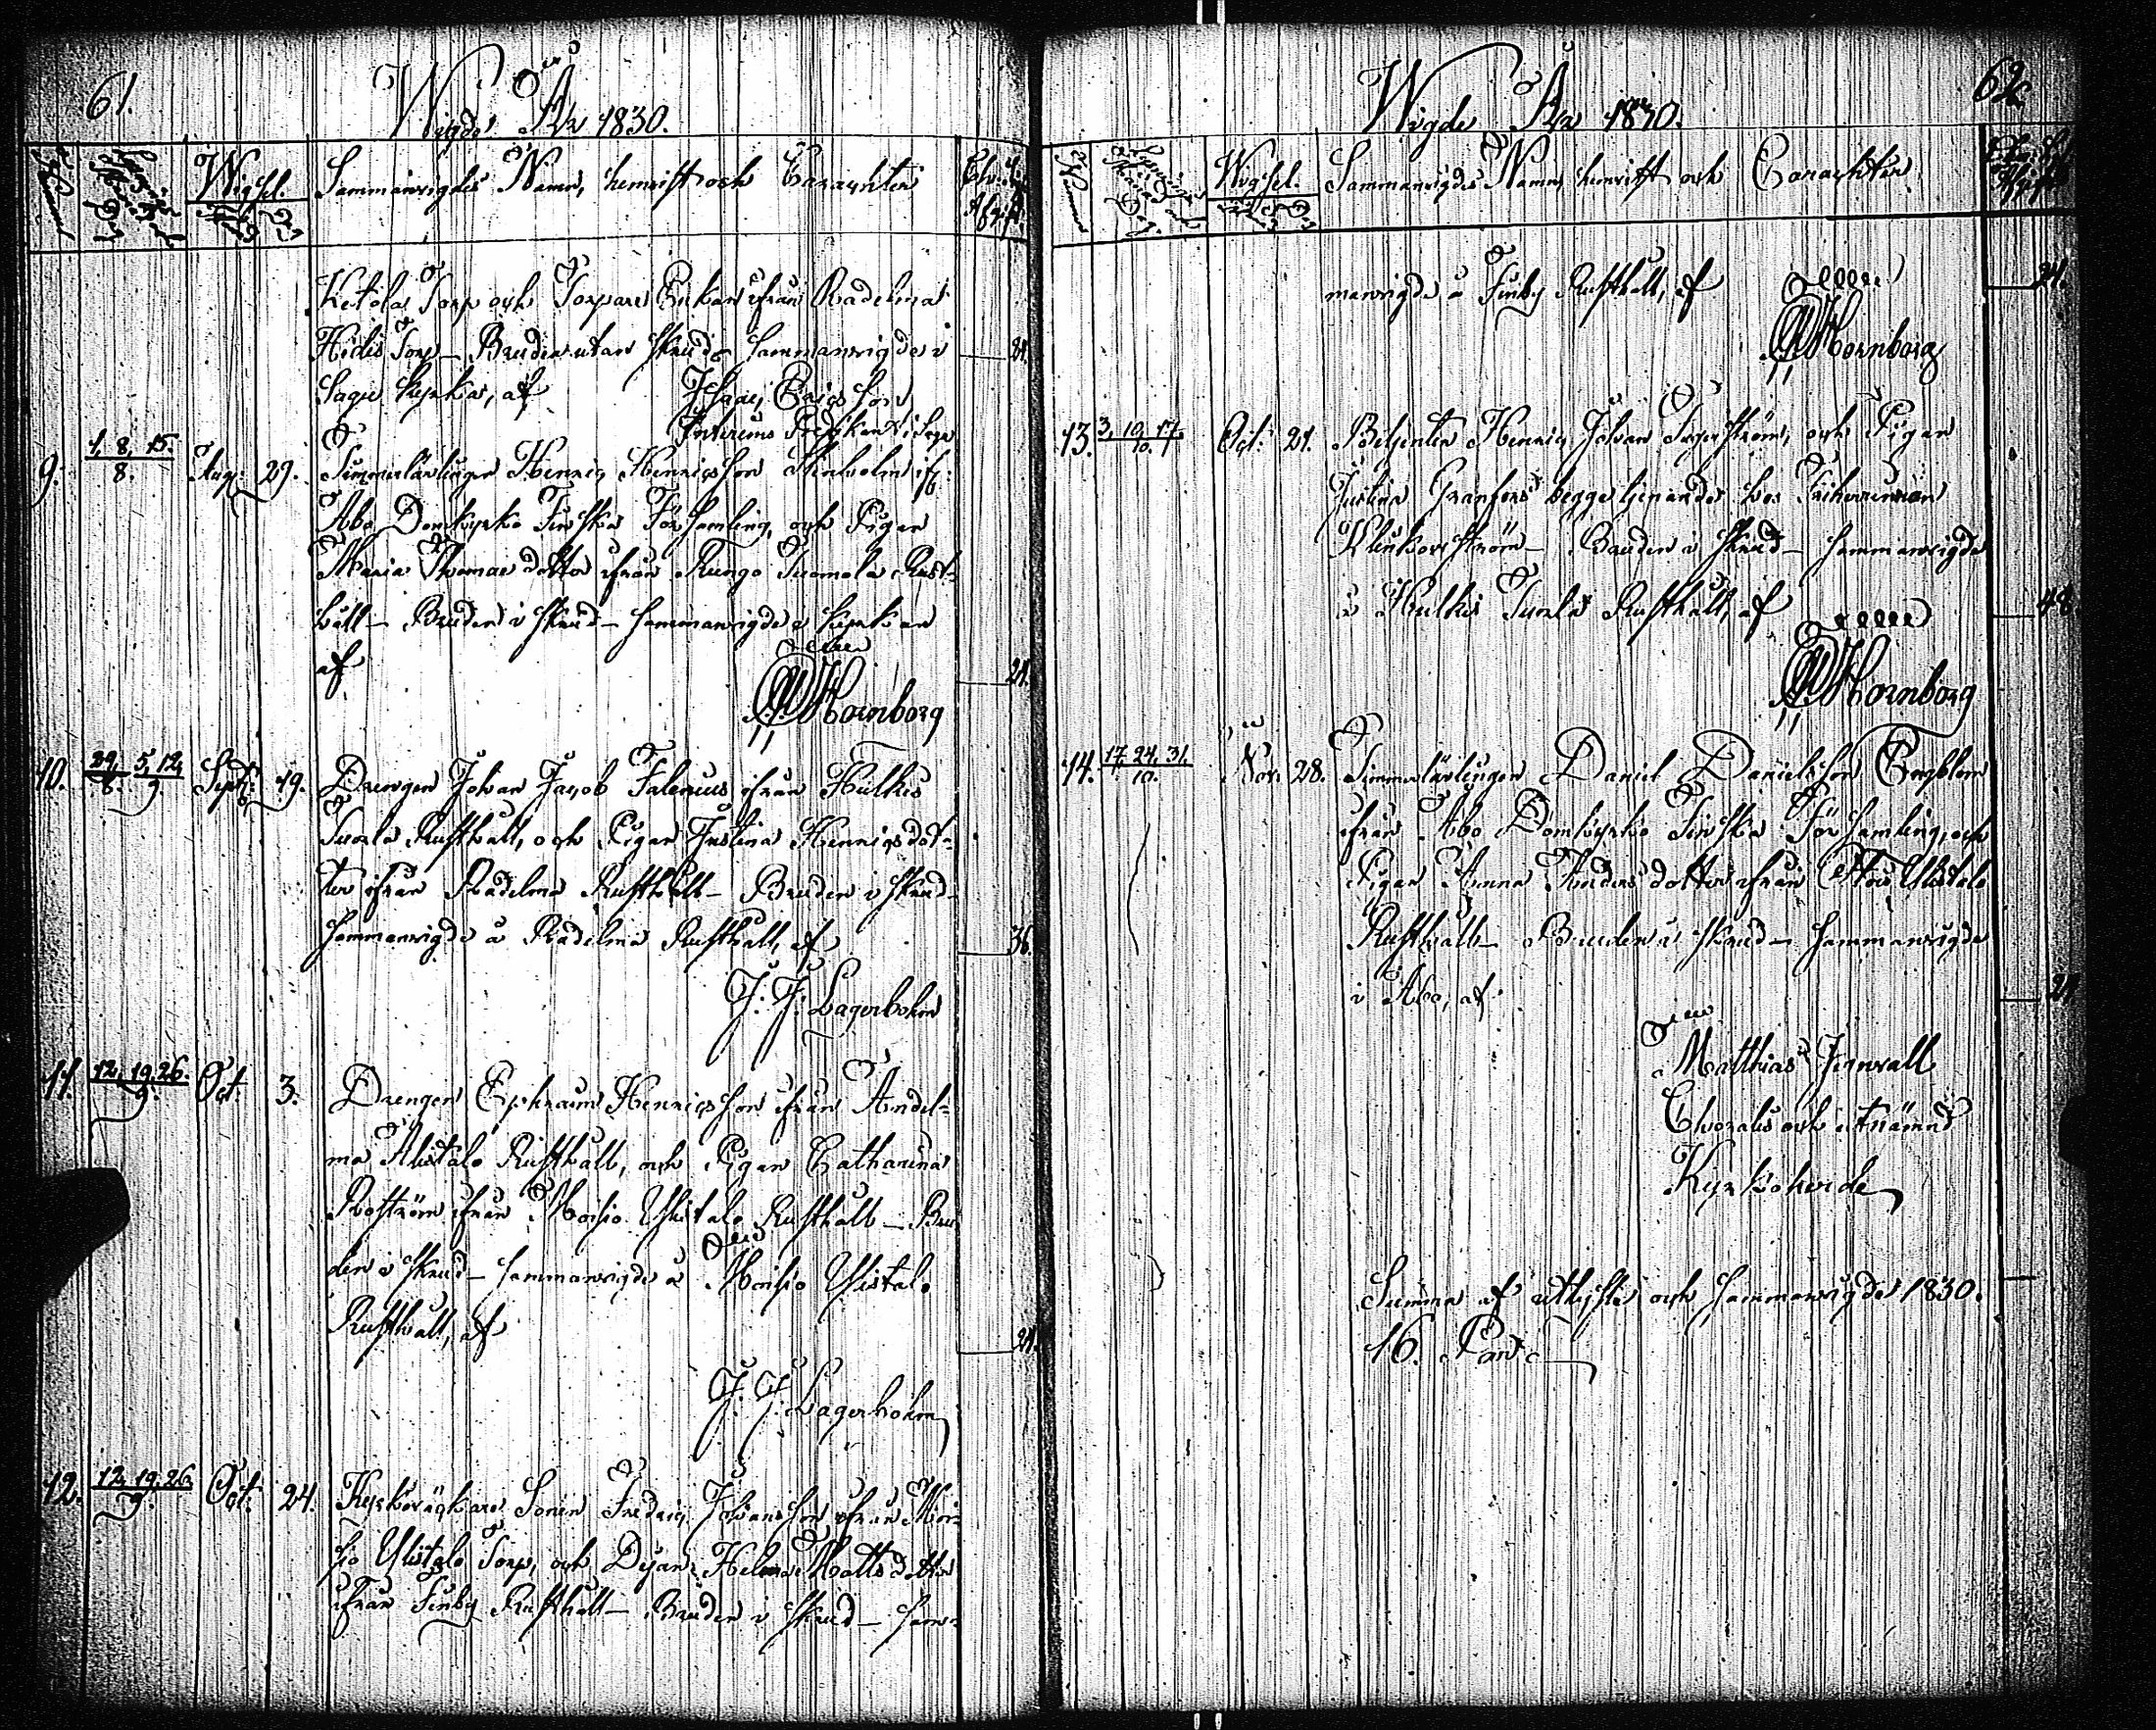 61.
Wigde År 1830.
Wigsel.
Sammanwigdes Namn, hemvist och Carachter
Ketola Torp och Torpare Enkan ifrån Radelma
Heikis Torp – Bruden utan skrud – sammanwigde i
Sagu kyrka, af
Isaac Ericsson
Interims Predikant i Sagu
24.
9. 1, 8, 15. / 8. Aug: 29. Timmerlärlingen Henric Henricsson Stenholm ifr:
Åbo Domkyrko Finska Församling, och Pigan
Maria Thomasdotter ifrån Rungo Tuomola Rust-
håll – Bruden i skrud – sammanwigde i kyrkan
af
Hornborg
24.
10. 29 / 8. 5, 12, / 9. Sept: 19. Drengen Johan Jacob Falenius ifrån Hulkis
Turla Rusthåll, och Pigan Justina Henricsdot-
ter ifrån Radelma Rusthåll – Bruden i skrud
sammanwigde å Radelma Rusthåll, af
36.
J: F: Lagerbohm
11. 12, 19, 26. / 9. Oct: 3. Drengen Ephraim Henricsson ifrån Andel-
ma Alistalo Rusthåll, och Pigan Catharina
Roström ifrån Moisio Ylistalo Rusthåll – Bru-
den i skrud – sammanwigde å Moisio Ylistalo
Rusthåll, af
24.
J: F: Lagerbohm
12. 12, 19, 26. / 9. Oct: 24. Kyrkoväktare Sonen Fredric Johansson ifrån Moi-
sio Ylistalo Torp, och Pigan Helena Mattsdotter
ifrån Finby Rusthåll – Bruden i skrud – sam-
62.
Wigde År 1830.
Wigsel.
Sammanwigdes Namn, hemvist och Carachter
manwigde å Finby Rusthåll, af
24.
Hornborg
13. 3, 10, 17. / 10. Oct: 21. Betjenten Henric Johan Segerström, och Pigan
Justina Granfors begge tjenande hos Friherrinnan
Klinkowström – Bruden i skrud – sammanwigde
å Hulkis Turla Rusthåll, af
48
Hornborg
14. 17, 24, 31. / 10. Nov: 28. Timmerlärlingen Daniel Danielsson Engblom
ifrån Åbo Domkyrko Finska Församling, och
Pigan Anna Andersdotter ifrån Ylistalo
Rusthåll – Bruden i skrud – sammanwigde
i Åbo, af
24
Matthias
Kyrkoherde
Summa af utlyste och sammanwigde 1830.
16. Par –